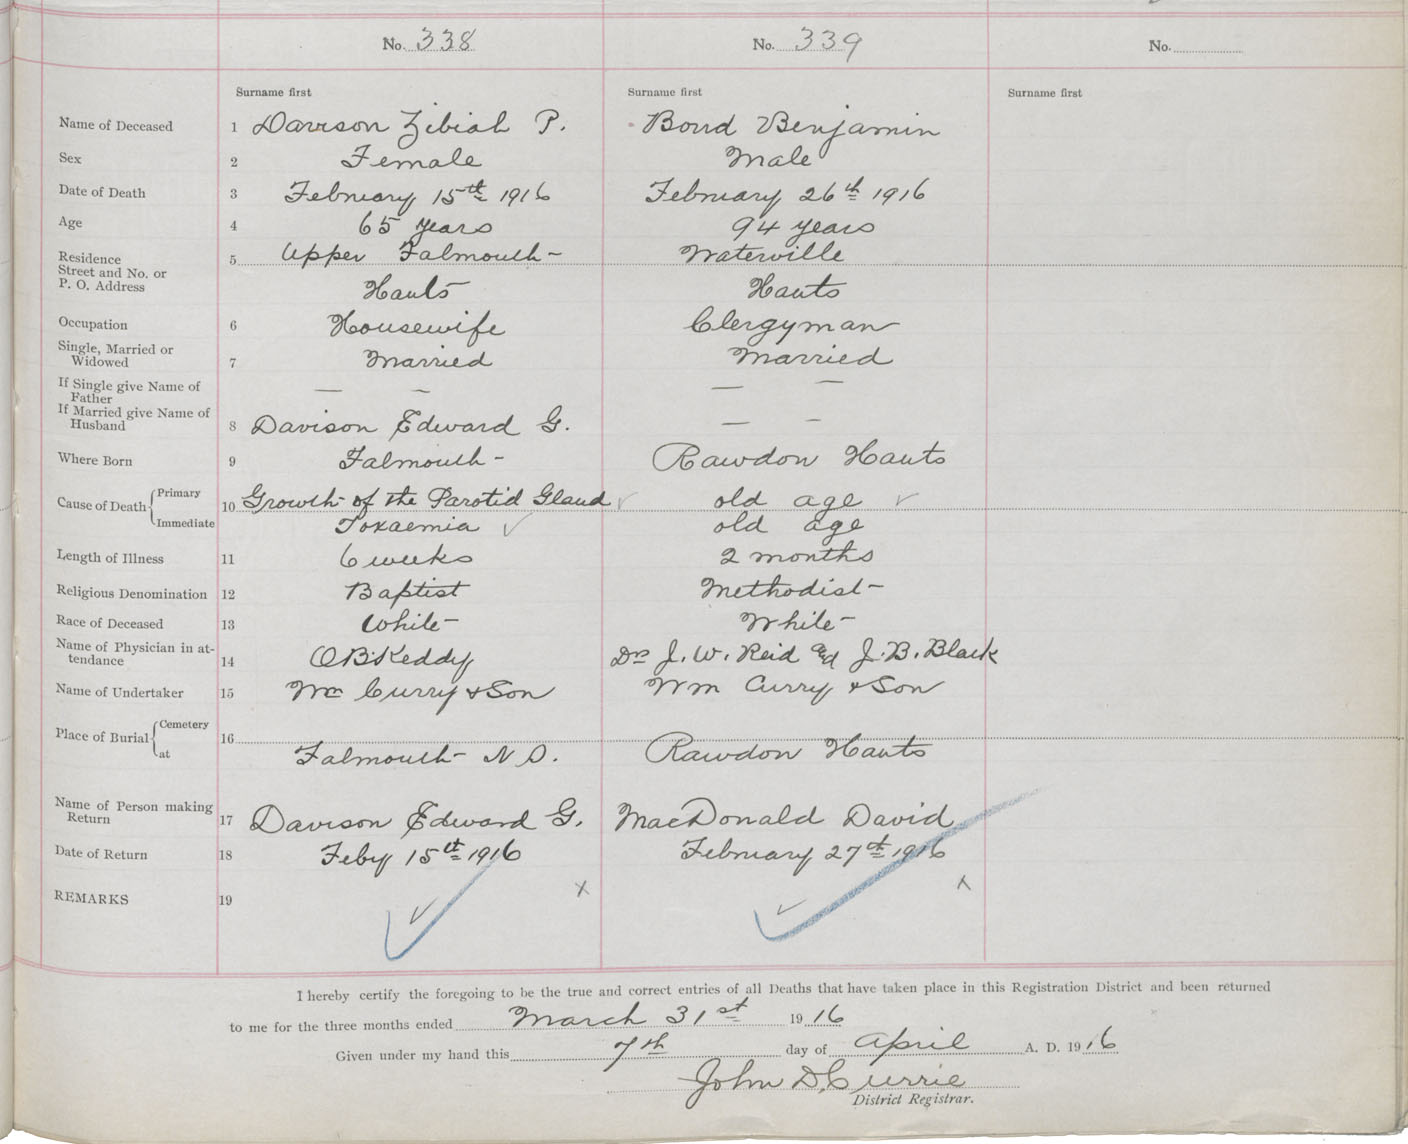 No. 338 No. 339 No.
Surname first Surname first Surname first
Name of Deceased 1 Davison Zibiah P. Bond Benjamin
Sex 2 Female Male
Date of Death 3 February 15th 1916 February 26th 1916
Age 4 65 years 94 years
Residence 5 Upper Falmouth Waterville
Street and No. or
P. O. Address Hants Hants
Occupation 6 Housewife Clergyman
Single, Married or
Widowed 7 Married Married
If Single give Name of
Father — — — —
If Married give Name of
Husband 8 Davison Edward G. — —
Where Born 9 Falmouth Rawdon Hants
Cause of Death Primary 10 Growth of the Parotid Gland ✓ old age ✓
Immediate Toxaemia ✓ old age
Length of Illness 11 6 weeks 2 months
Religious Denomination 12 Baptist Methodist
Race of Deceased 13 White White
Name of Physician in at-
tendance 14 O B Keddy Drs J. W. Reid and J. B. Black
Name of Undertaker 15 Wm Curry & Son Wm Curry & Son
Place of Burial Cemetery 16
at Falmouth N.S. Rawdon Hants
Name of Person making
Return 17 Davison Edward G. MacDonald David
Date of Return 18 Feby 15th 1916 February 27th 1916
REMARKS 19 ✓ x ✓ x
I hereby certify the foregoing to be the true and correct entries of all Deaths that have taken place in this Registration District and been returned
to me for the three months ended March 31st 1916
Given under my hand this 7th day of April A. D. 1916
John D. Currie
District Registrar.